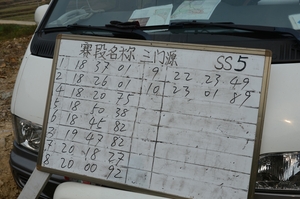 赛段名称 三门源 SS5
1 18 37 01 9 22 23 49
2 18 26 01 10 23 01 89
4 18 20 75
5 18 50 38
6 18 45 82
3 19 43 82
7 20 18 27
8 20 00 92